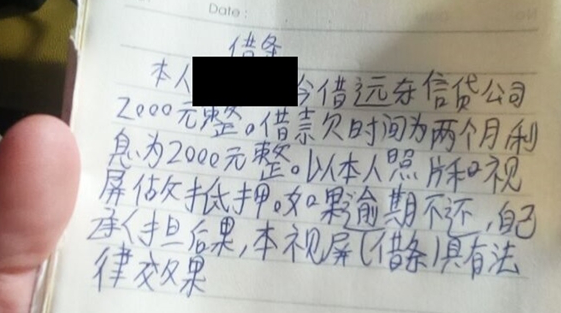 Date:
借条
本人 今借远东信贷公司
2000元整。借款欠时间为两个月利
息为2000元整。以本人照片和视
屏估欠抵押。如果逾期不还,自己
承担后果,本视屏(借条)具有法
律效果